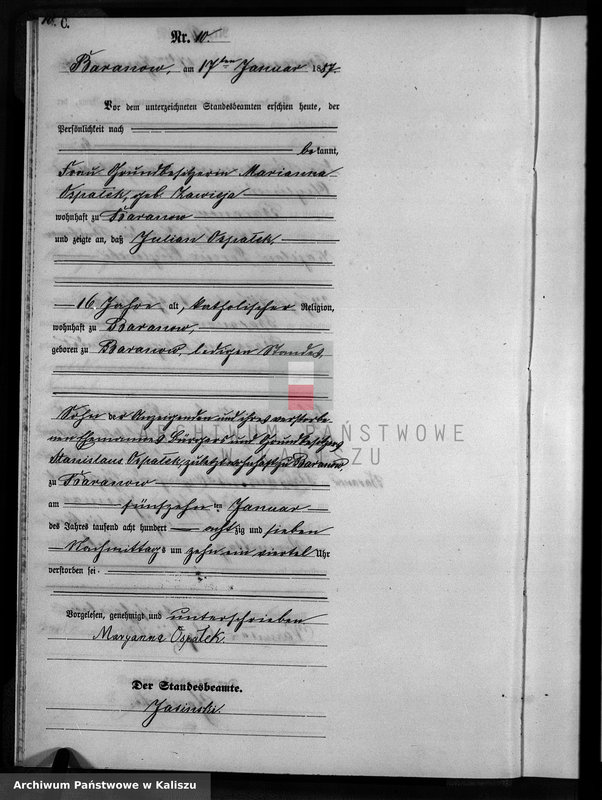 C.
Nr. 10.
Baranow, am 17ten Januar 1887
Vor dem unterzeichneten Standesbeamten erschien heute, der
Persönlichkeit nach
bekannt,
Frau Grundbesitzerin Marianna
Ospalek, geb. Zawieja
wohnhaft zu Baranow
und zeigte an, daß Julian Ospałek,
16 Jahre alt, katholischer Religion,
wohnhaft zu Baranow,
geboren zu Baranow, ledigen Standes
Sohn der Anzeigenden und ihres verstorbe-
nen Ehemannes, Bürgers und Grundbesitzers
Stanislaus Ospałek, zuletzt wohnhaft zu Baranow
zu Baranow
am fünfzehnten Januar
des Jahres tausend acht hundert achtzig und sieben
Nachmittags um zehn ein viertel Uhr
verstorben sei.
Vorgelesen, genehmigt und unterschrieben
Maryanna Ospałek
Der Standesbeamte.
Jasinski
ARCHIWUM PAŃSTWOWE
W KALISZU
Archiwum Państwowe w Kaliszu